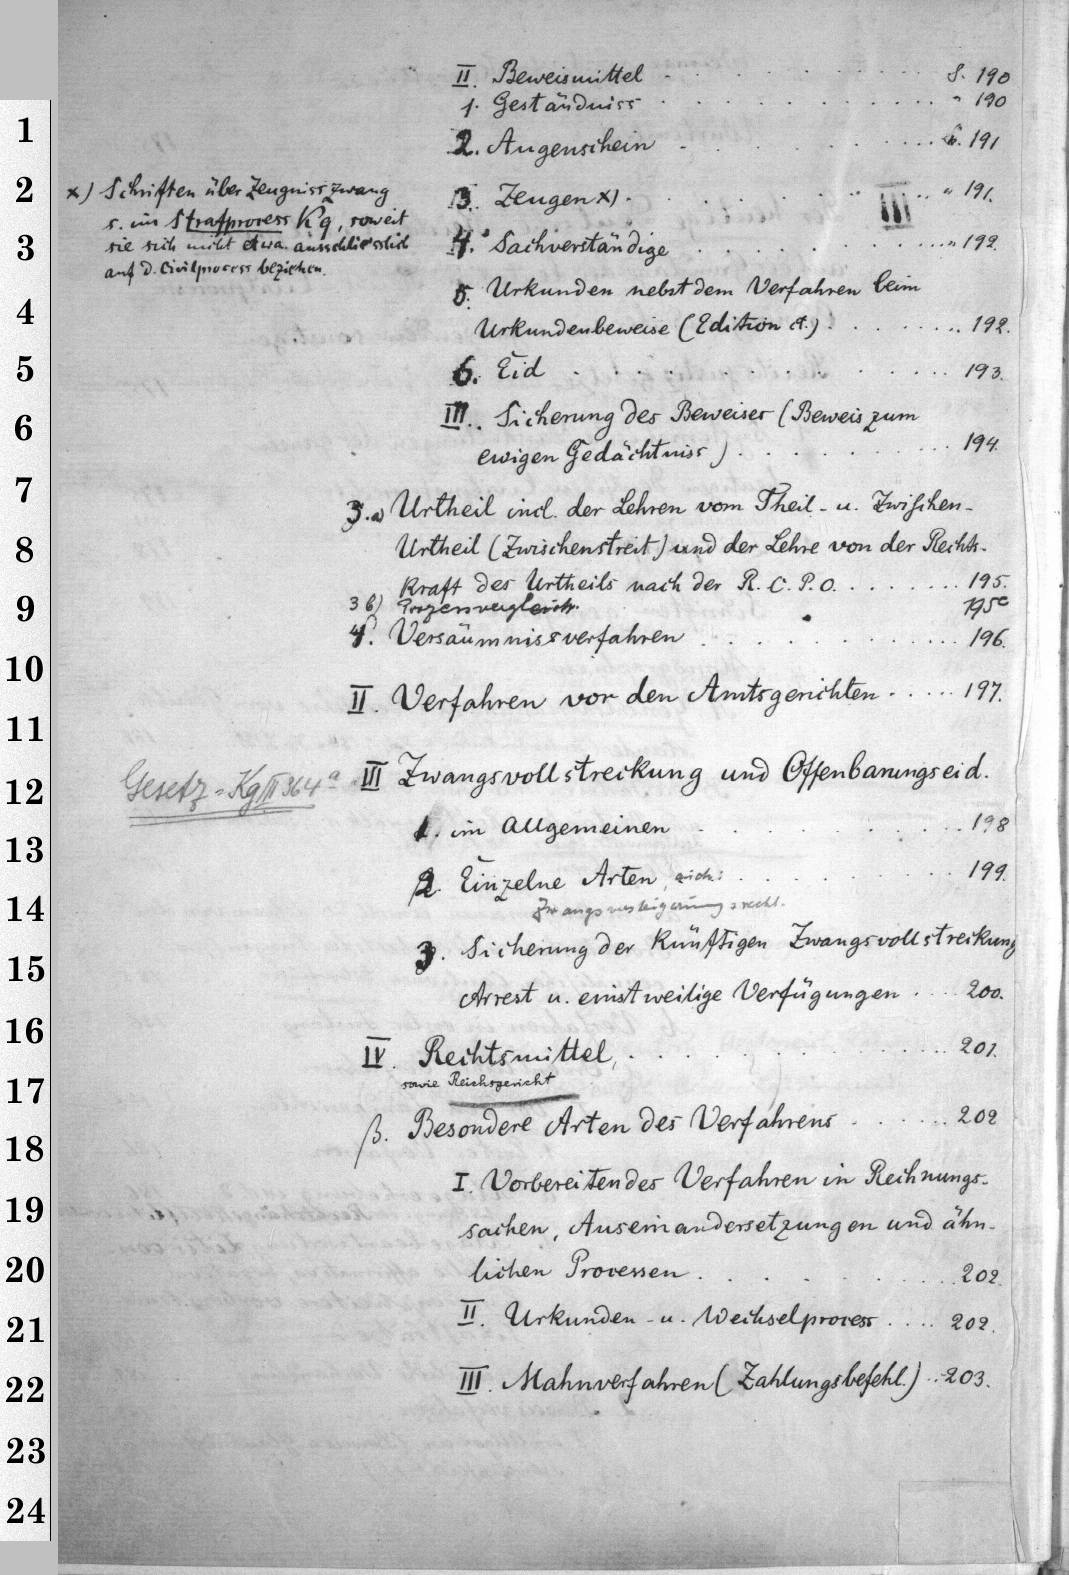 II. Beweismittel . . . . . . . . . . S. 190
1. Geständniss . . . . . . . . . . " 190
2. Augenschein . . . . . . . . . S. 191
3. Zeugen x) . . . . . . . . . " 191.
x) Schriften über Zeugnisszwang
s. im Strafprocess Kg, soweit
sie sich nicht etwa ausschliesslich
auf d. Civilprocess beziehen.
III
4. Sachverständige . . . . . . . . . " 192.
5. Urkunden nebst dem Verfahren beim
Urkundenbeweise (Edition et.) . . . . . . 192.
6. Eid . . . . . . . . . . 193.
III. Sicherung des Beweises (Beweis zum
ewigen Gedächtniss) . . . . . . . . 194.
3.a) Urtheil incl. der Lehren vom Theil- u. Zwischen-
Urtheil (Zwischenstreit) und der Lehre von der Rechts-
kraft des Urtheils nach der R. C. P. O. . . . . . . . 195.
3 b) Prozessvergleich. 195c
4. Versäumnissverfahren . . . . . . . . 196.
II. Verfahren vor den Amtsgerichten . . . . . 197.
III Zwangsvollstreckung und Offenbarungseid.
Gesetz = Kg II 364a
1. im Allgemeinen . . . . . . . . 198
2. Einzelne Arten, . . . . . . . 199.
Zwangsversteigerungsrecht.
3. Sicherung der künftigen Zwangsvollstreckung
Arrest u. einstweilige Verfügungen . . . . 200.
IV. Rechtsmittel, . . . . . . . . . . 201.
sowie Reichsgericht
β. Besondere Arten des Verfahrens . . . . . . 202
I. Vorbereitendes Verfahren in Rechnungs-
sachen, Auseinandersetzungen und ähn-
lichen Processen . . . . . . . . 202.
II. Urkunden- u. Wechselprocess . . . . 202.
III. Mahnverfahren (Zahlungsbefehl.) . . 203.
1
2
3
4
5
6
7
8
9
10
11
12
13
14
15
16
17
18
19
20
21
22
23
24